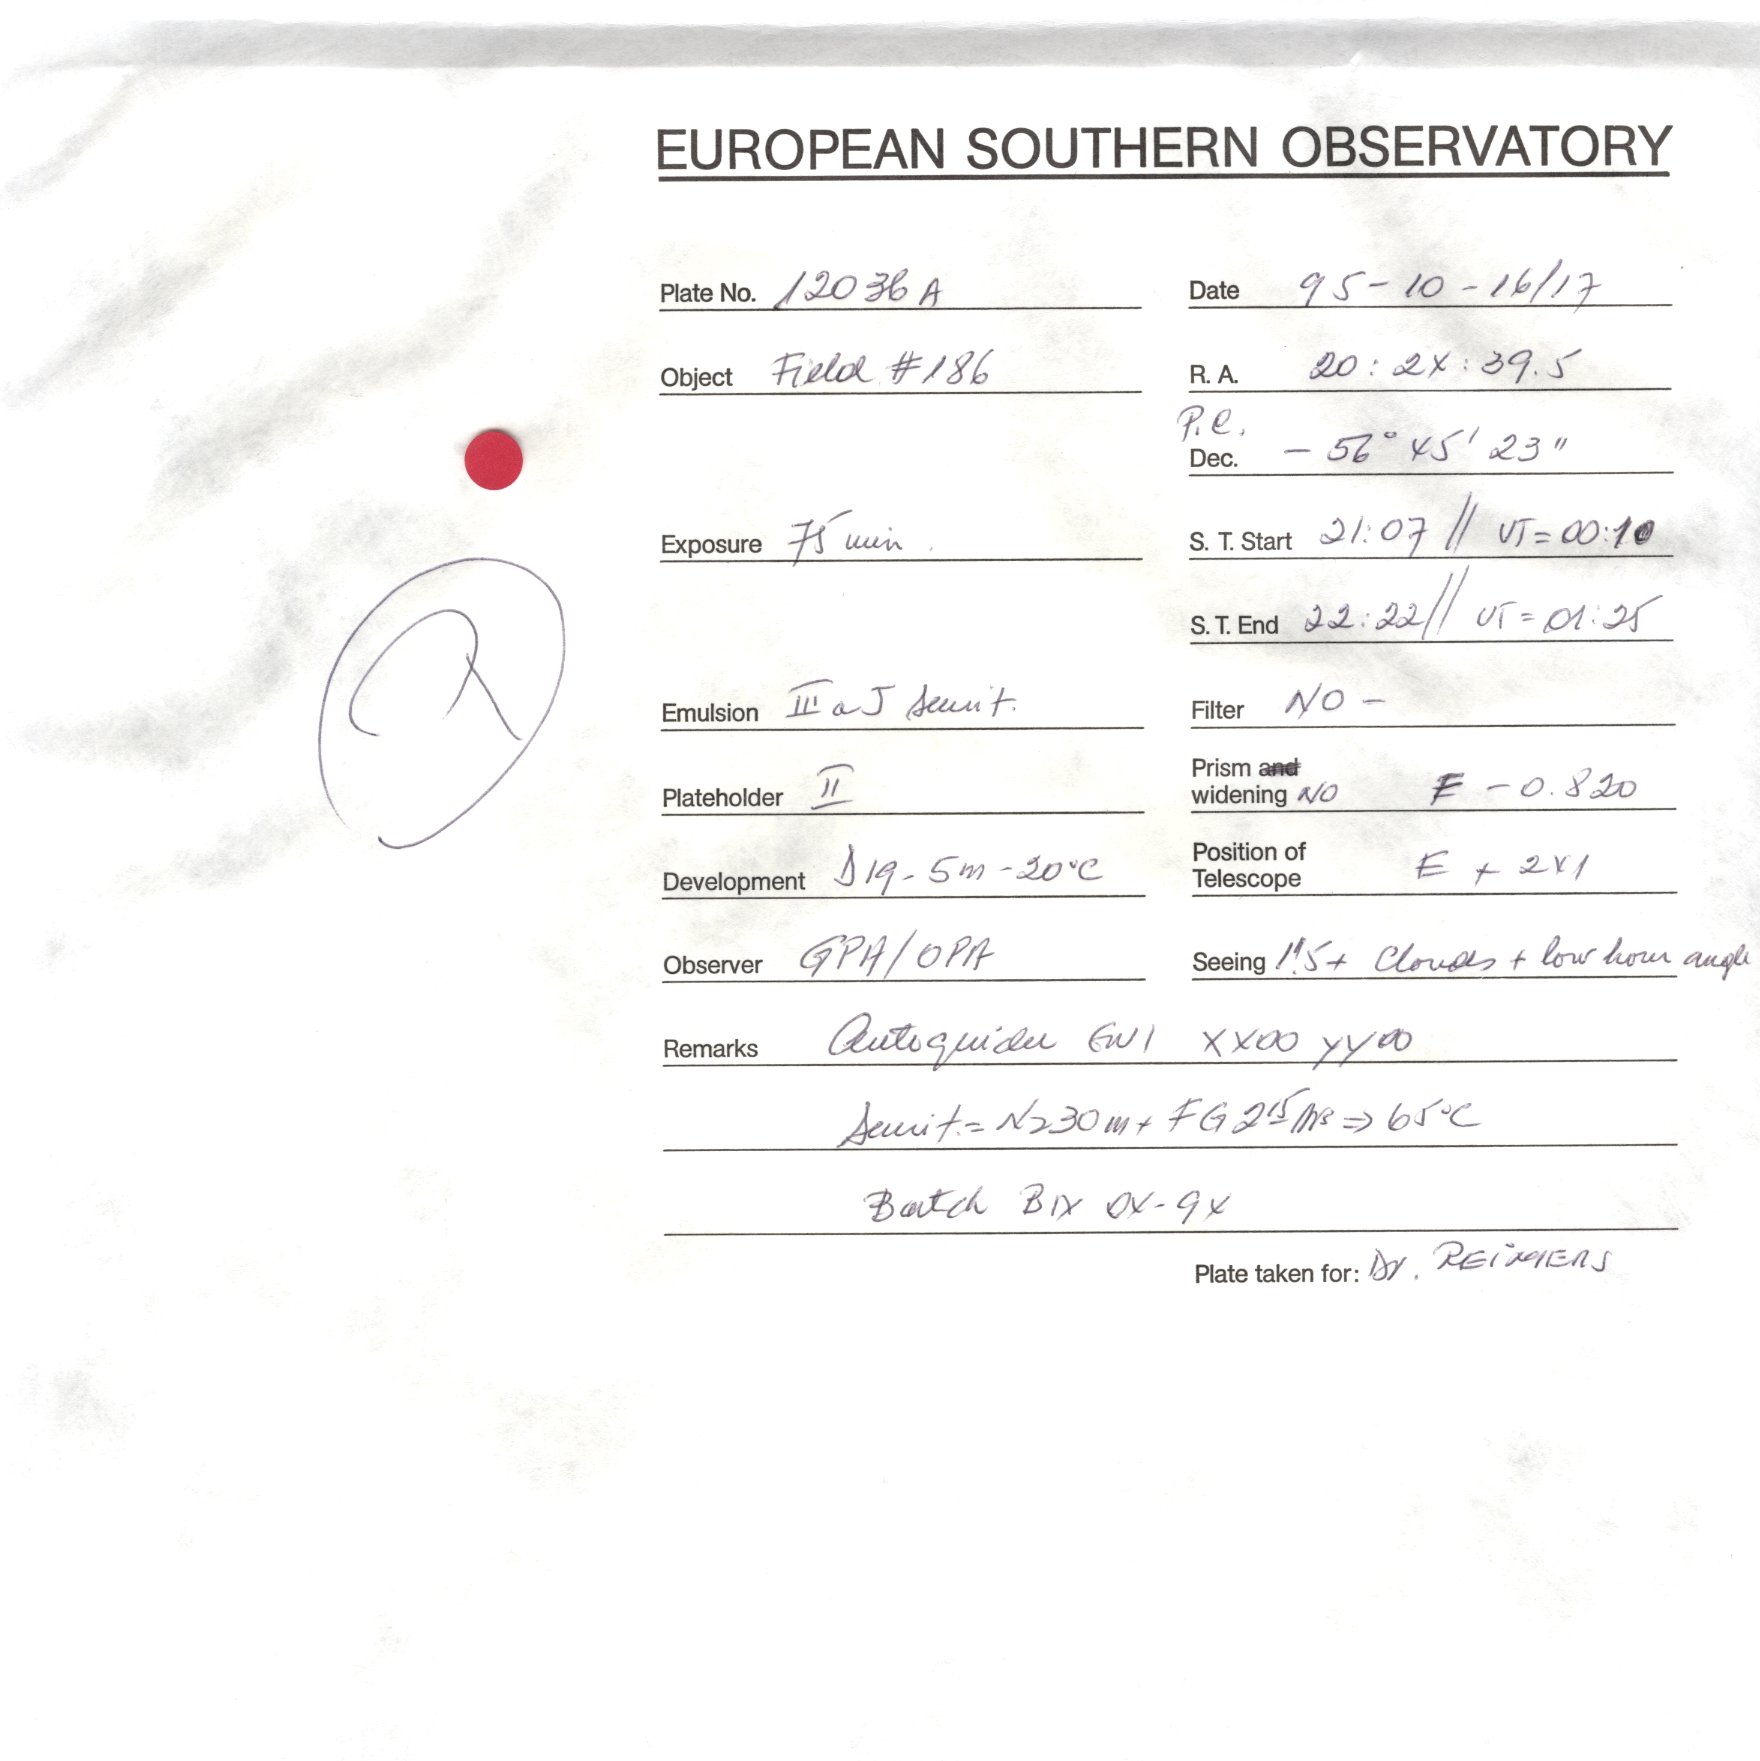 EUROPEAN SOUTHERN OBSERVATORY
Plate No. 12036 A
Date 95-10-16/17
Object Field #186
R. A. 20:24:39.5
P.C.
Dec. - 56° 45' 23"
Exposure 75 min.
S. T. Start 21:07 // UT=00:10
S. T. End 22:22 // UT=01:25
Emulsion III a J Sensit.
Filter NO -
Plateholder II
Prism and
widening NO E - 0.820
Development D19 - 5m - 20°C
Position of
Telescope E + 241
Observer GPA/OPA
Seeing 1".5 + Clouds + low hour angle
Remarks Autoguider XX00 YY00
Sensit. = N2 30m + FG 2 15 hrs => 65°C
Batch 04-94
Plate taken for: Dr. REIMERS